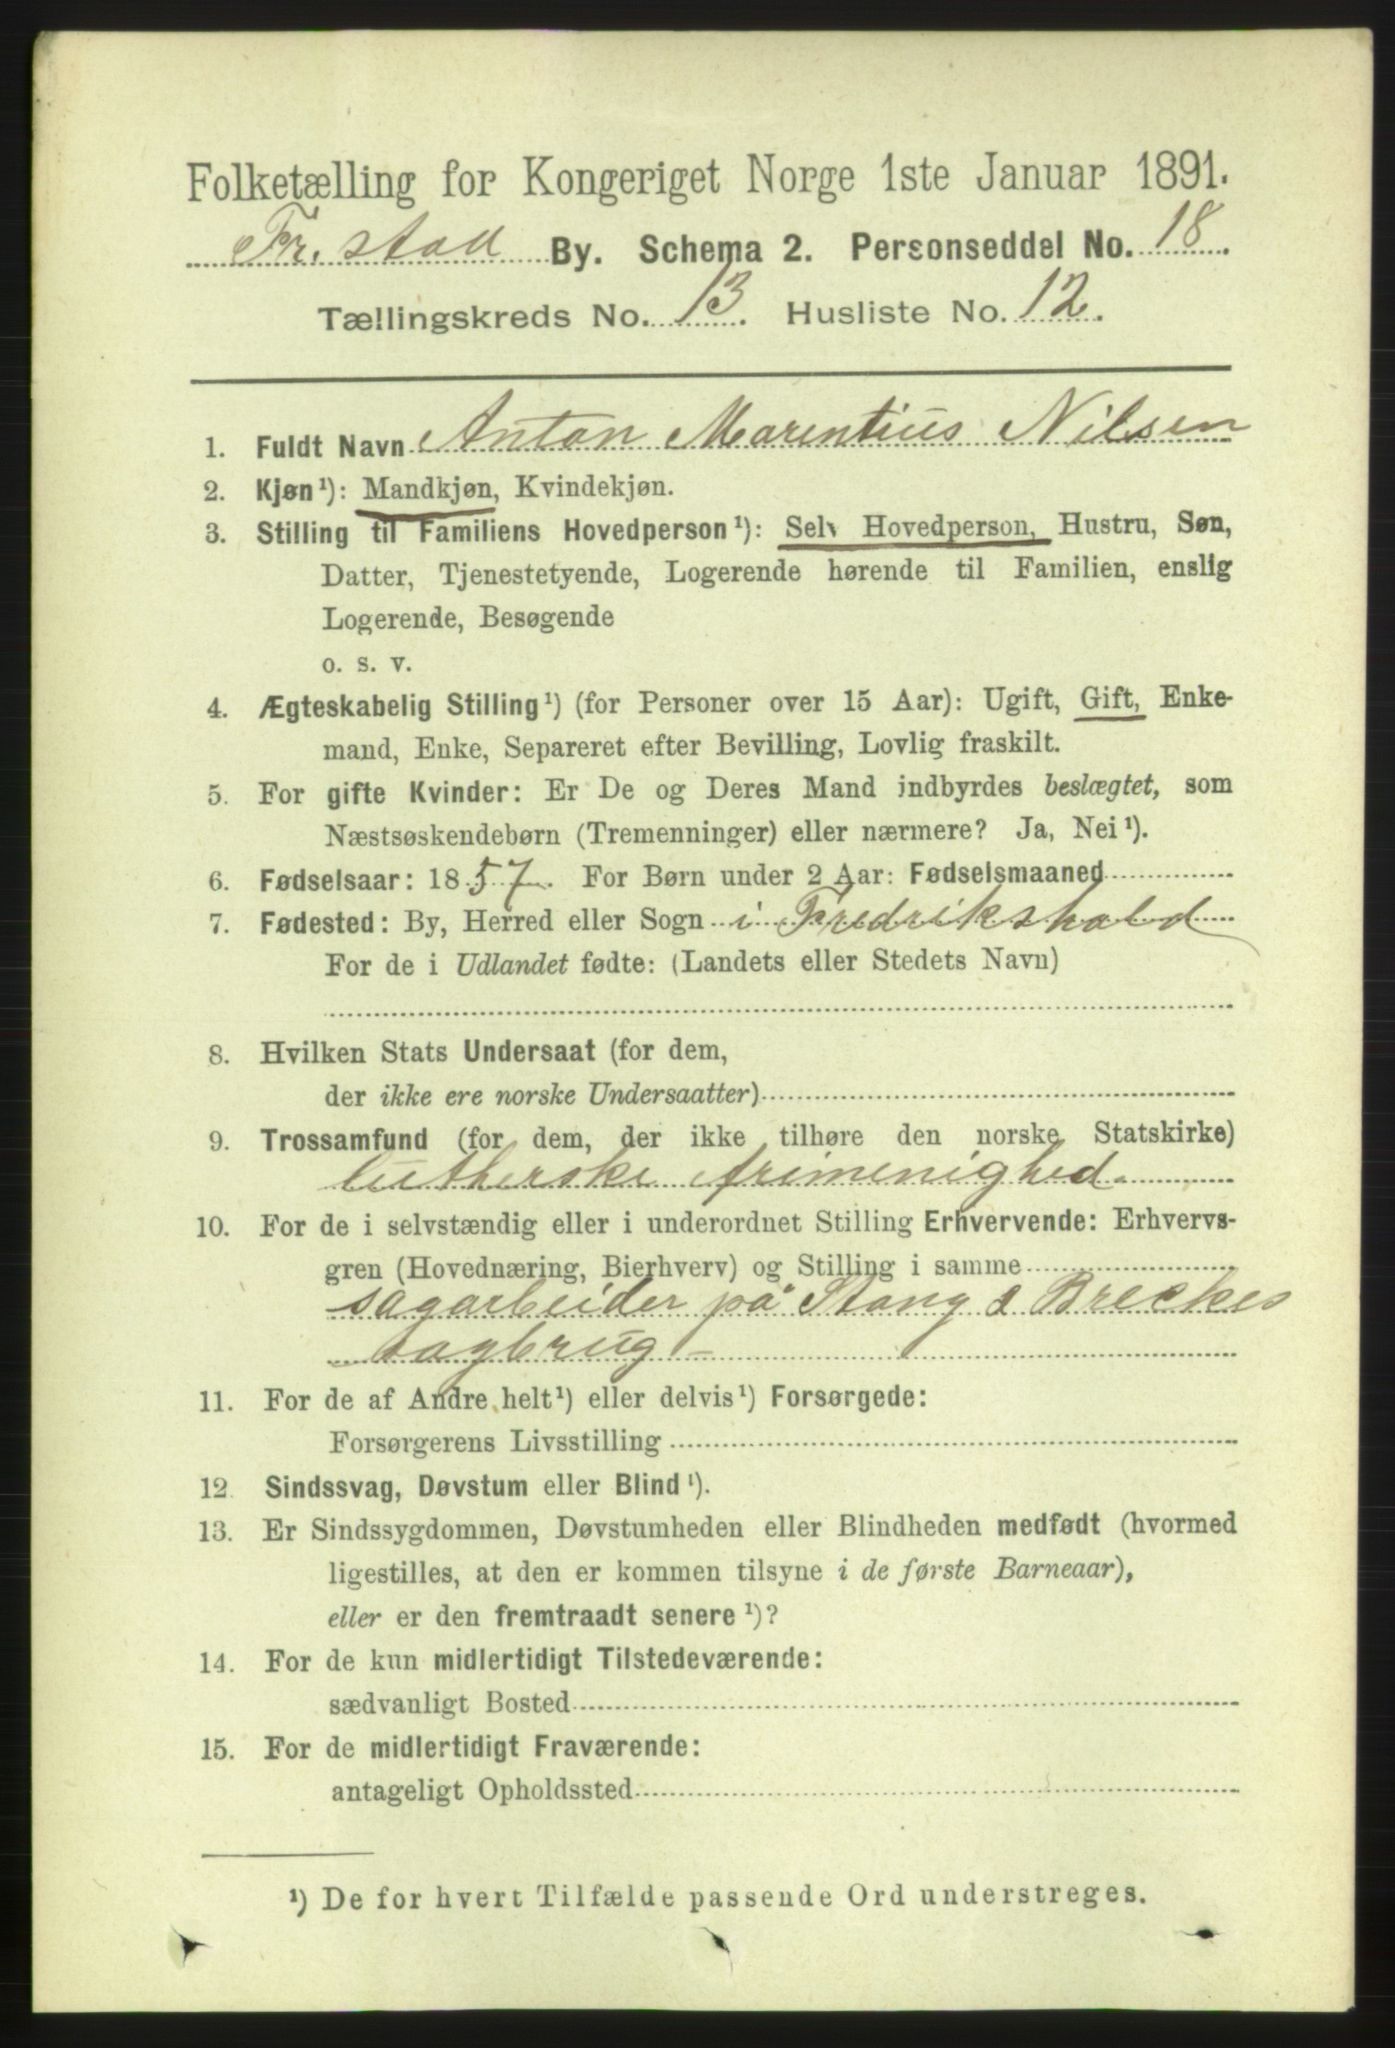 Folketælling for Kongeriget Norge 1ste Januar 1891.
Fr.stad By. Schema 2. Personseddel No. 18.
Tællingskreds No. 13. Husliste No. 12.
1. Fuldt Navn Anton Marentius Nilsen
2. Kjøn¹): Mandkjøn, Kvindekjøn.
3. Stilling til Familiens Hovedperson¹): Selv Hovedperson, Hustru, Søn,
Datter, Tjenestetyende, Logerende hørende til Familien, enslig
Logerende, Besøgende
o. s. v.
4. Ægteskabelig Stilling¹) (for Personer over 15 Aar): Ugift, Gift, Enke-
mand, Enke, Separeret efter Bevilling, Lovlig fraskilt.
5. For gifte Kvinder: Er De og Deres Mand indbyrdes beslægtet, som
Næstsøskendebørn (Tremenninger) eller nærmere? Ja, Nei¹).
6. Fødselsaar: 1857. For Børn under 2 Aar: Fødselsmaaned
7. Fødested: By, Herred eller Sogn i Fredrikshald
For de i Udlandet fødte: (Landets eller Stedets Navn)
8. Hvilken Stats Undersaat (for dem,
der ikke ere norske Undersaatter)
9. Trossamfund (for dem, der ikke tilhøre den norske Statskirke)
lutherske frimenighed.
10. For de i selvstændig eller i underordnet Stilling Erhvervende: Erhvervs-
gren (Hovednæring, Bierhverv) og Stilling i samme
sagarbeider på Stang & Breckes
sagbrug
11. For de af Andre helt¹) eller delvis¹) Forsørgede:
Forsørgerens Livsstilling
12. Sindssvag, Døvstum eller Blind¹).
13. Er Sindssygdommen, Døvstumheden eller Blindheden medfødt (hvormed
ligestilles, at den er kommen tilsyne i de første Barneaar),
eller er den fremtraadt senere¹)?
14. For de kun midlertidigt Tilstedeværende:
sædvanligt Bosted
15. For de midlertidigt Fraværende:
antageligt Opholdssted
¹) De for hvert Tilfælde passende Ord understreges.